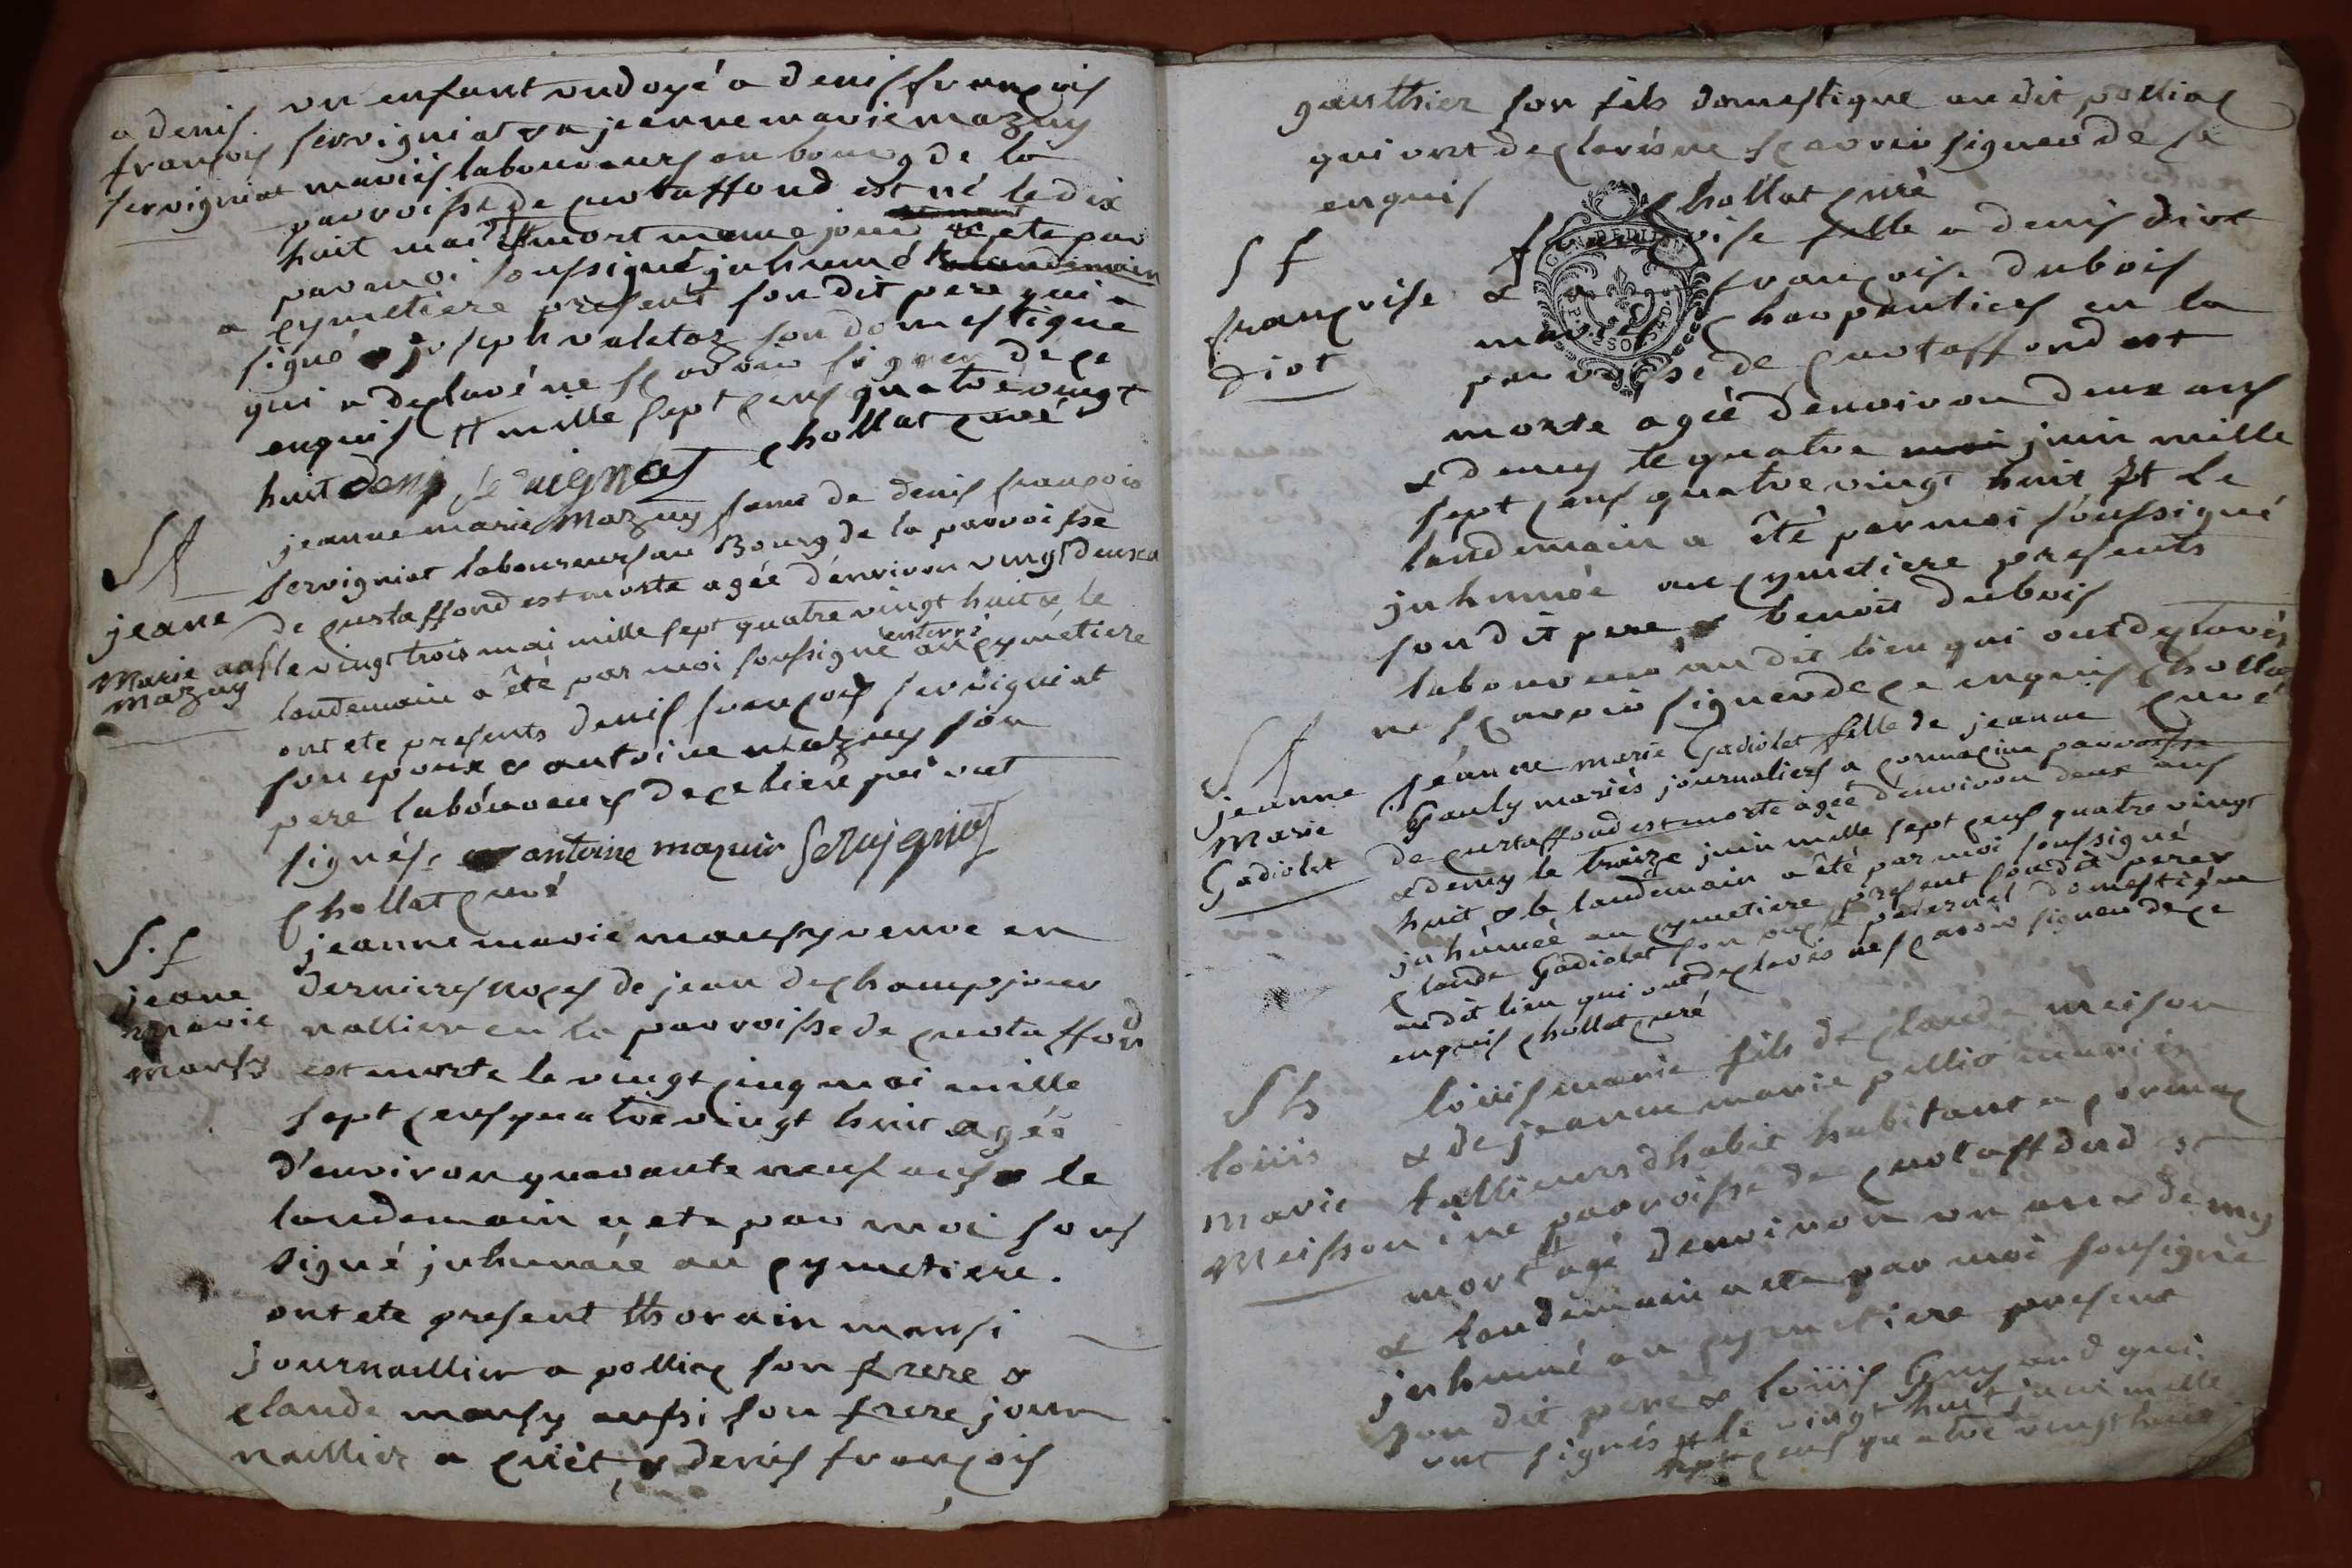 a denis
françois
servigniat
un enfant ondoyé a denis françois
servigniat & a jeanne marie mazuy
mariés laboureurs au bourg de la
parroisse de curtaffond est né le dix
huit mai # mort meme jour & ete par
par moi soussigné inhumé
a cymetiere present son dit pere qui a
signé & joseph valetoz son domestique
qui a declaré ne sçavoir signer de ce
enquis # mille sept cens quatre vingt
huit denis servignat chollat curé
Sf
jeane
Marie
mazuy
jeanne marie mazuy fame de denis françois
servigniat laboureurs au Bourg de la parroisse
de curtaffond est morte agée d'environ vingt deux
ans le vingt trois mai mille sept quatre vingt huit & le
landemain a été par moi soussigné enterré au cymetiere
ont ete presents denis françois servigniat
son epoux & antoine mazuy son
pere laboureurs de ce lieu qui ont
signés antoine mazuir Servigniat
chollat curé
S.f
jeane
marie
mansy
jeanne marie mansy veuve en
dernieres noces de jean dechamp jour
nallier en la parroisse de curtaffond
est morte le vingt cinq mai mille
sept cens quatre vingt huit agée
d'environ quarante neuf ans & le
landemain a ete par moi sous
signé inhumée au cymetiere.
ont ete present thorain mansi
journaillier a polliac son frere &
claude mansy aussi son frere jour
naillier a cuèt, & denis françois
gauthier son fils domestique au dit polliac
qui ont declarés ne sçavoir signer de ce
enquis chollat curé
Sf
françoise
diot
françoise fille a denis diot
& a françoise dubois
mariés charpentiers en la
parroisse de curtaffond est
morte agée d'environ deux ans
& demy le quatre mai juin mille
sept cens quatre vingt huit & le
landemain a été par moi soussigné
inhumée au cymetiere presents
son dit pere & benoit dubois
laboureur au dit lieu qui ont declarés
ne sçavoir signer de ce enquis chollat
curé
Sf
jeanne
Marie
Gadiolet
jéanne marie Gadiolet fille de jeanne
Gauly mariés journaliers a cormacine parroisse
de curtaffond est morte agée d'environ deux ans
& demy le treize juin mille sept cens quatre vingt
huit & le landemain a été par moi soussigné
inhumée au cymetiere present son dit pere &
claude Gadiolet son oncle paternel domestique
au dit lieu qui ont declarés ne sçavoir signer de ce
enquis chollat curé
Sh
loüis
Marie
Meisson
loüis marie fils de claude meison
& de jeanne marie pellio mariés
tallieurs dhabit habitant a cormac
ine parroisse de curtaffond est
mort # agé denviron un an & demy
& landemain a ete par moi sousigné
inhumé au cymetiere present
son dit pere & loüis qui
ont signés # le vingt huit juin mille
sept cens quatre vingt huit